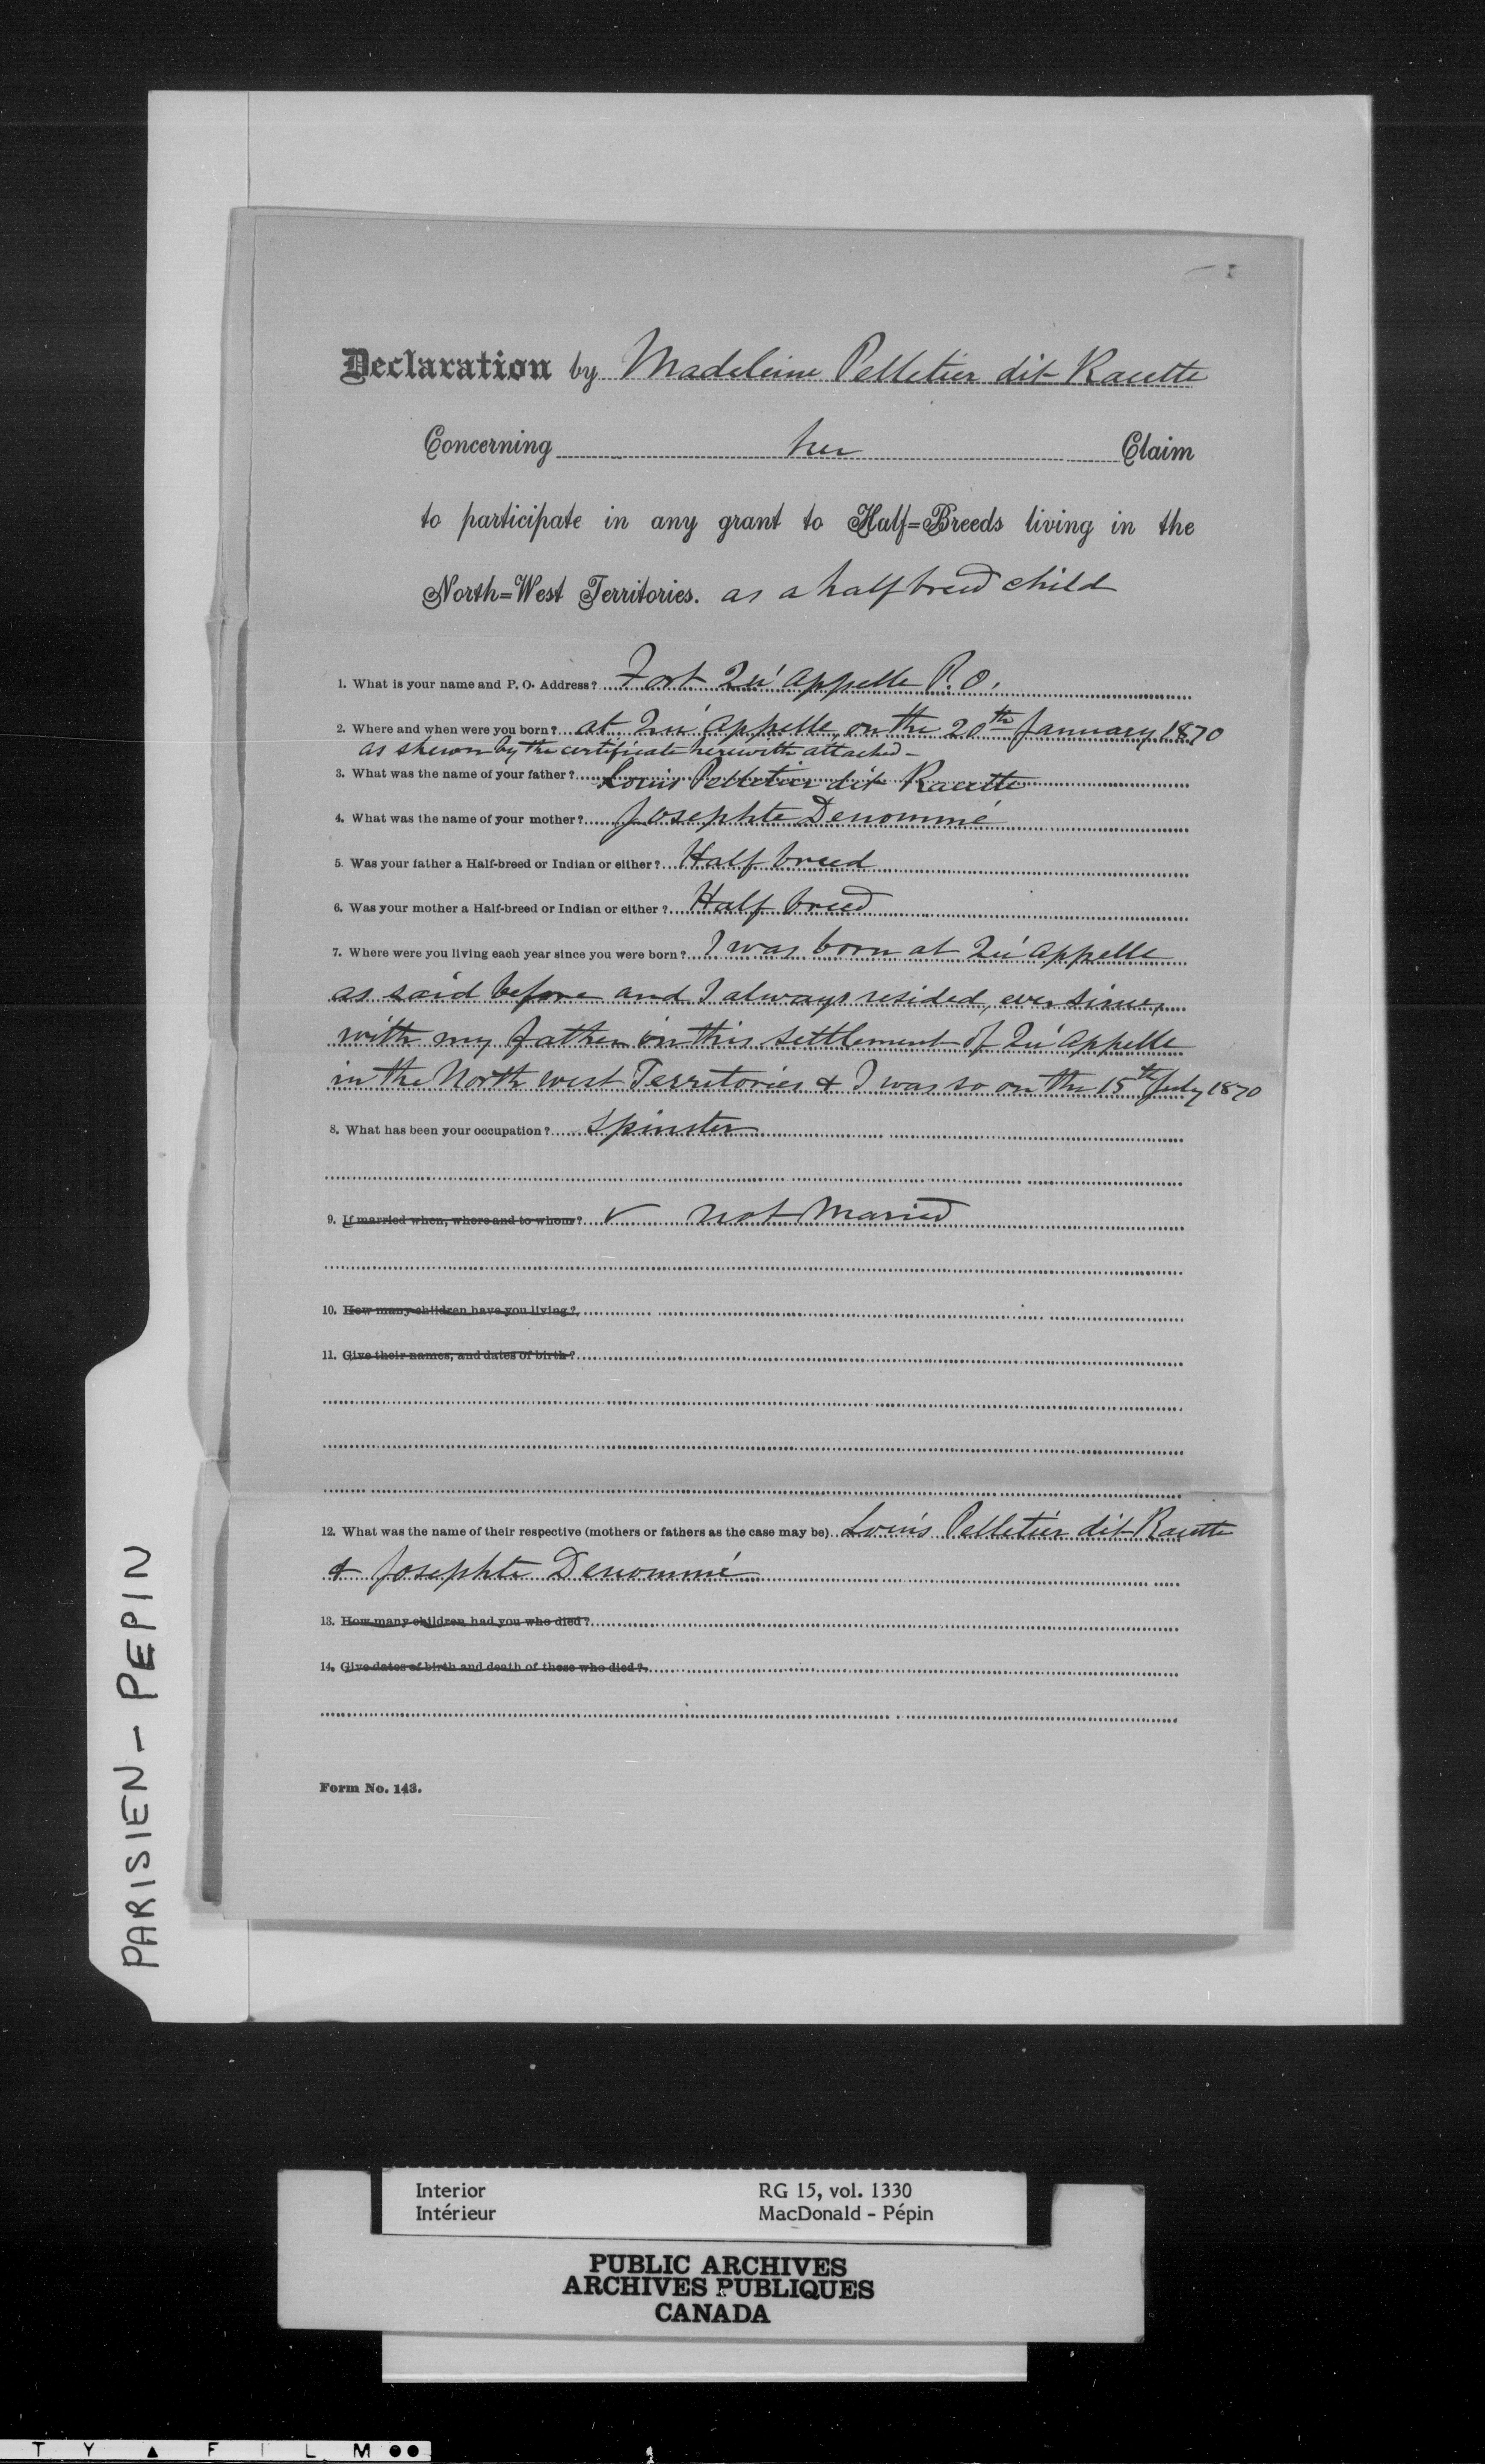 Declaration by Madeleine Pelletier dit Racette
Concerning her Claim
to participate in any grant to Half=Breeds living in the
North=West Territories. as a half breed child
1. What is your name and P. O. Address? Fort Qu'appelle P.O.
2. Where and when were you born? at Qu'appelle, on the 20th January 1870
as shewn by the certificate herewith attached -
3. What was the name of your father? Louis Pelletier dit Racette
4. What was the name of your mother? Josephte Denommé
5. Was your father a Half-breed or Indian or either? Half breed
6. Was your mother a Half-breed or Indian or either? Half breed
7. Where were you living each year since you were born? I was born at Qu'appelle
as said before and I always resided, ever since,
with my father in this settlement of Qu'appelle
in the North west Territories & I was so on the 15th July 1870
8. What has been your occupation? Spinster
9. If married when, where and to whom? ✓ not Maried
10. How many children have you living?
11. Give their names, and dates of birth?
12. What was the name of their respective (mothers or fathers as the case may be) Louis Pelletier dit Racette
& Josephte Denommé
13. How many children had you who died?
14. Give dates of birth and death of those who died?
Form No. 143.
PARISIEN - PEPIN
Interior RG 15, vol. 1330
Intérieur MacDonald - Pépin
PUBLIC ARCHIVES
ARCHIVES PUBLIQUES
CANADA
T Y ▲ F I L M ●●